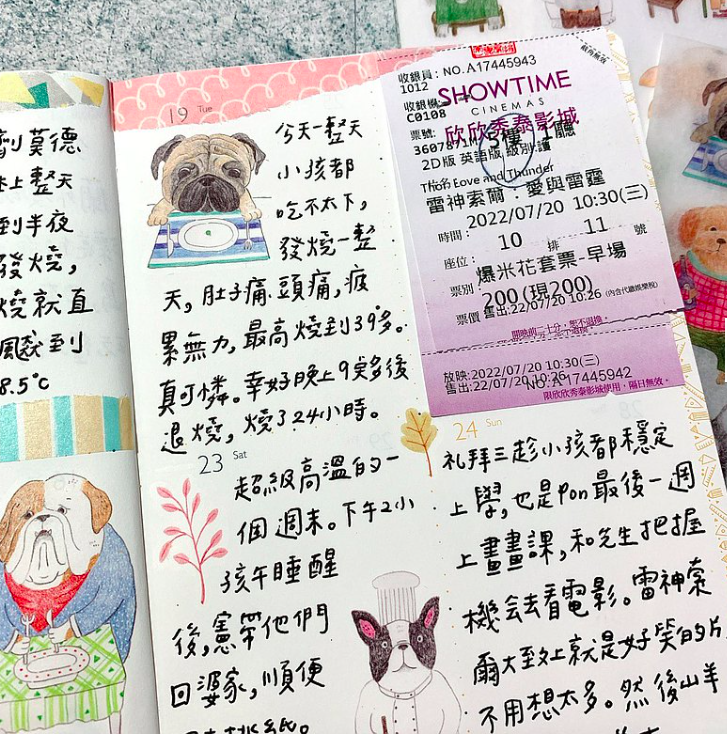 劑莫德
上整天
到半夜
發燒,
燒就直
飆到
8.5℃
19 Tue
今天一整天
小孩都
吃不太下,
發燒一整
天,肚子痛、頭痛,疲
累無力,最高燒到39多。
真可憐。幸好晚上9點多後
退燒,燒了24小時。
收銀員:NO.A17445943
1012
SHOWTIME
CINEMAS
收銀機:
C0108
欣欣秀泰影城
票號:
3607871M
5樓 1廳
2D版 英語版 級別:讀
Thor: Love and Thunder
雷神索爾:愛與雷霆
時間:2022/07/20 10:30(三)
座位:10 排 11 號
票別:爆米花套票-早場
票價 200 (現200)
售出:22/07/20 10:26 (內含代徵娛樂稅)
放映:2022/07/20 10:30(三)
售出:22/07/20 10:26
NO.A17445942
限欣欣秀泰影城使用,隔日無效。
23 Sat
超級高溫的一
個週末。下午2小
孩午睡醒
後,憲帶他們
回婆家,順便
24 Sun
禮拜三趁小孩都穩定
上學,也是pon最後一週
上畫畫課,和先生把握
機會去看電影。雷神索
爾大致上就是好笑的片
不用想太多。然後山羊